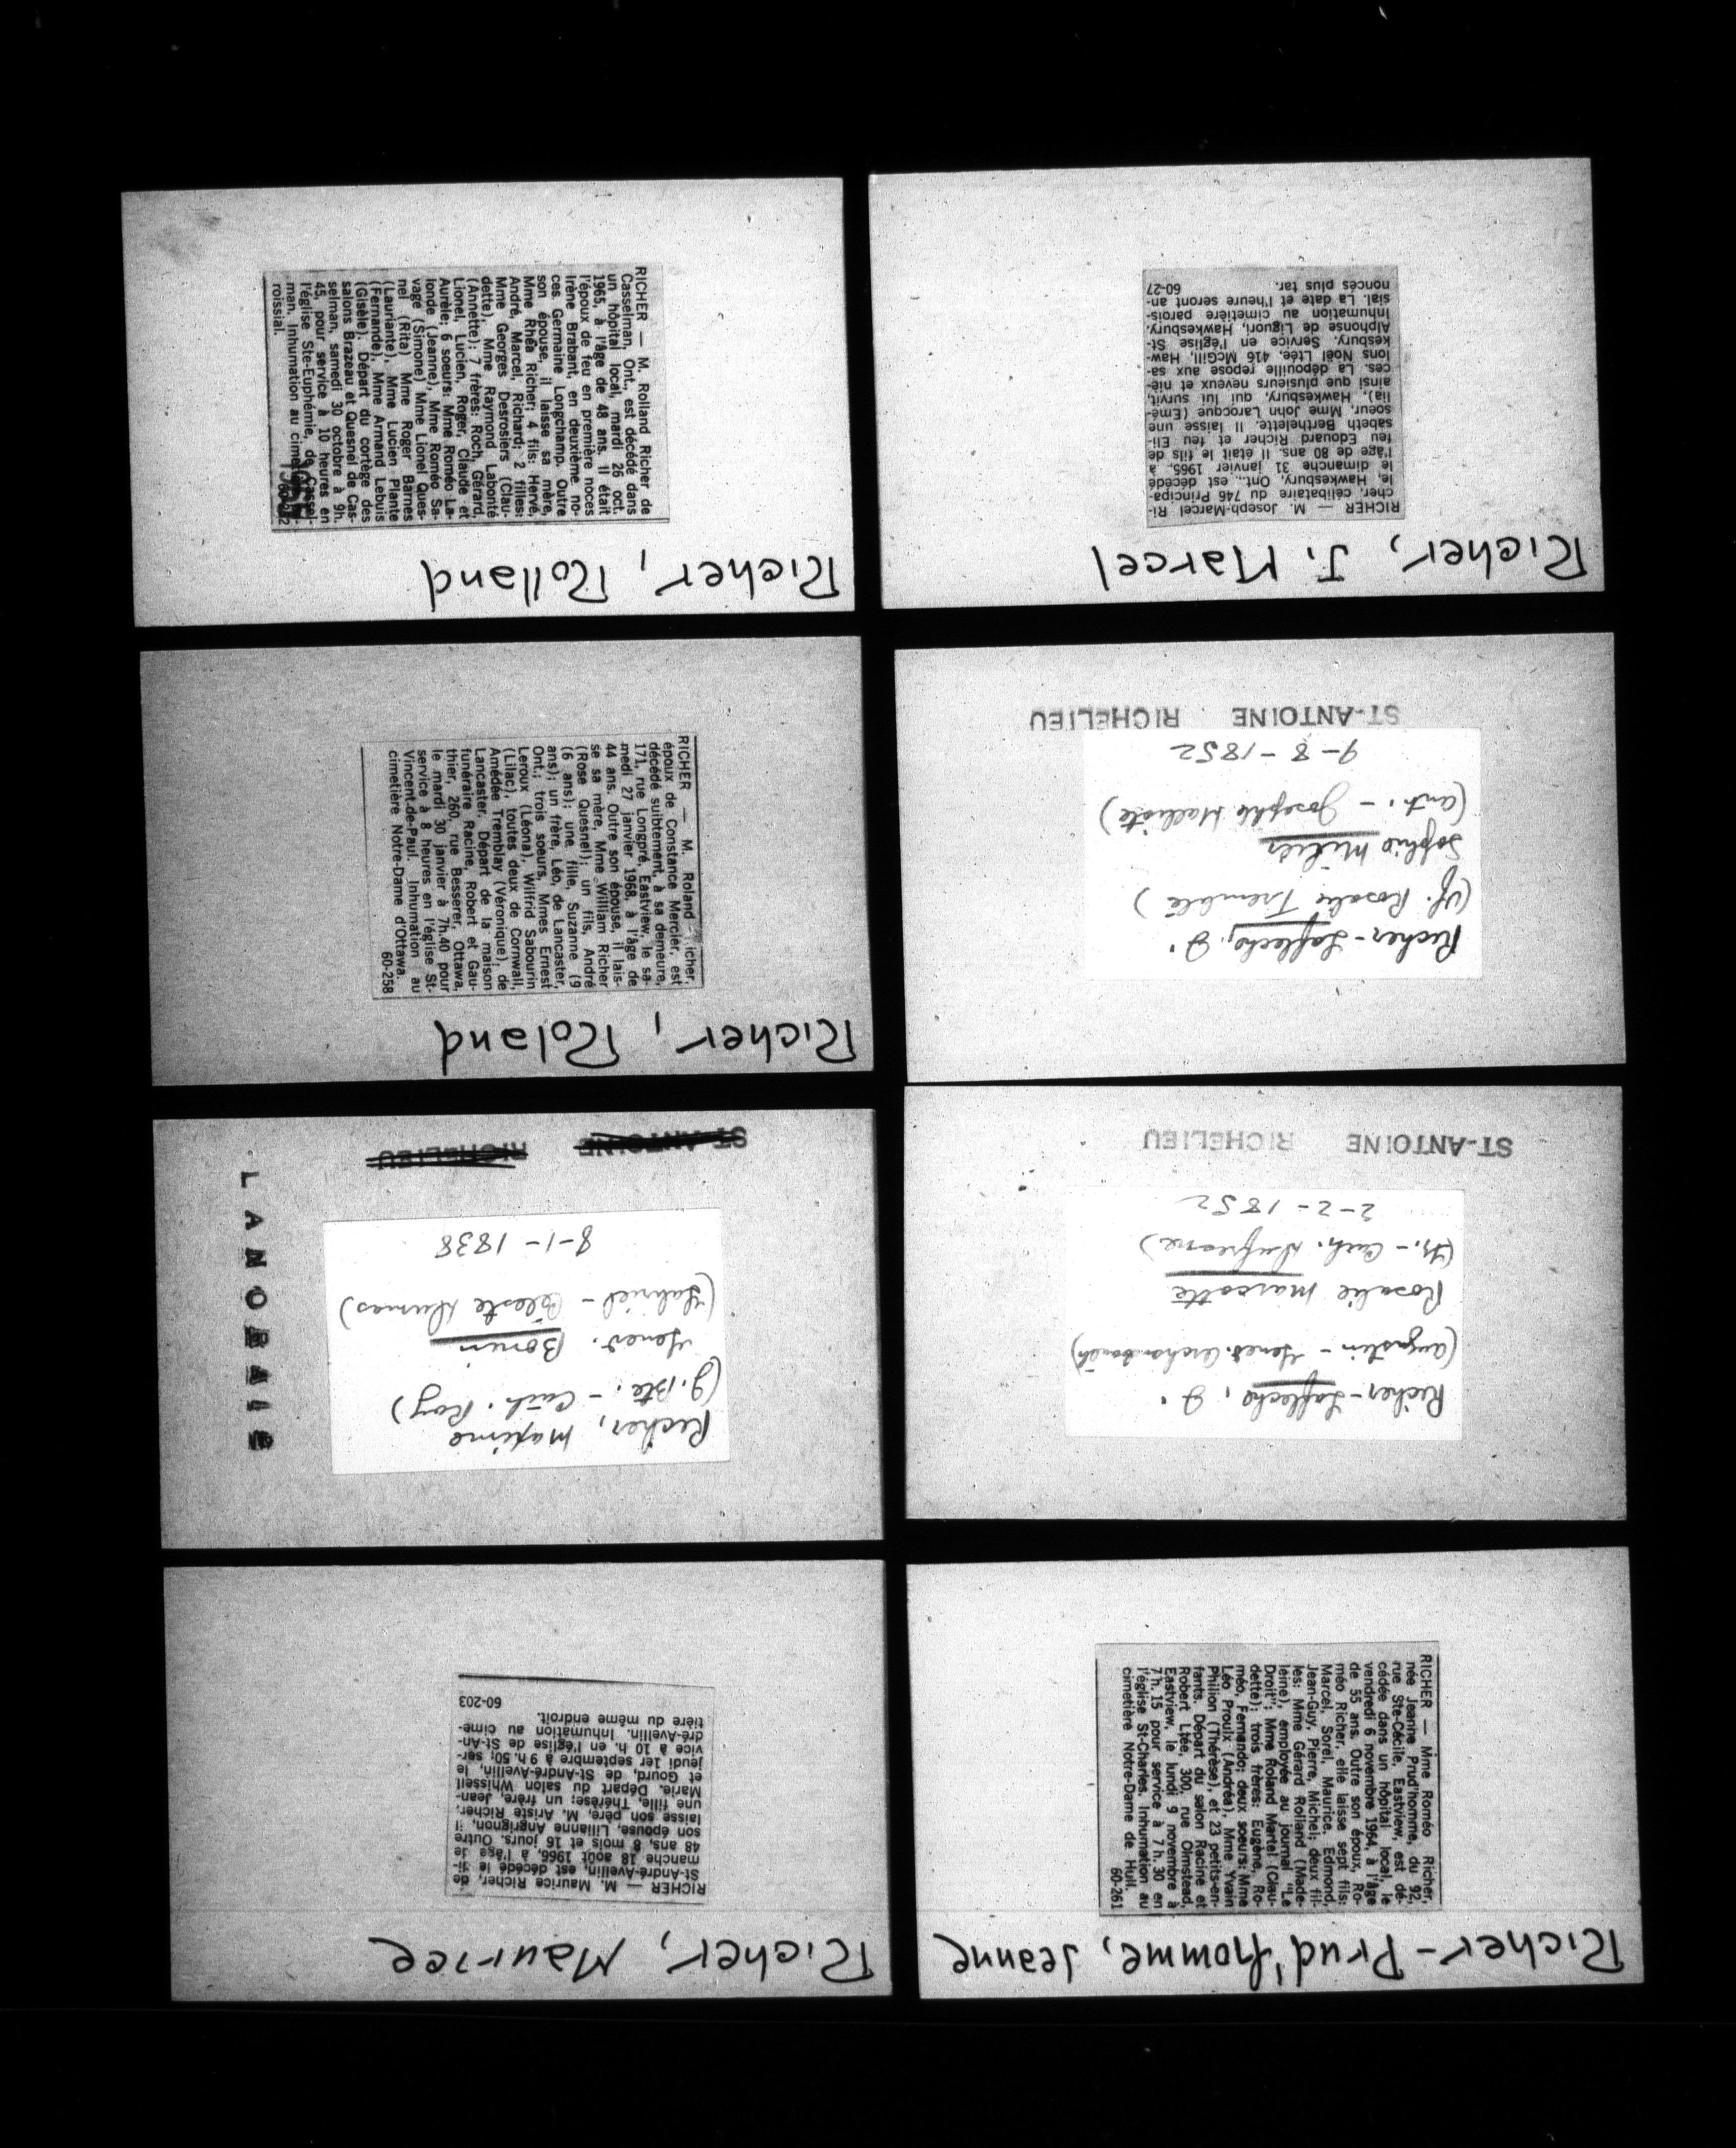 Richer-Prud'homme, Jeanne
RICHER — Mme Roméo Richer,
née Jeanne Prud'homme, du 92,
rue Ste-Cécile, Eastview, est dé-
cédée dans un hôpital local, le
vendredi 6 novembre 1964, à l'âge
de 55 ans. Outre son époux, Ro-
méo Richer, elle laisse sept fils:
Marcel, Sorel, Maurice, Edmond,
Jean-Guy, Pierre, Michel; deux fil-
les: Mme Gérard Rolland (Made-
leine), employée au journal "Le
Droit"; Mme Roland Martel (Clau-
dette); trois frères: Eugène, Ro-
méo, Fernando; deux soeurs: Mme
Léo Proulx (Andréa), Mme Yvain
Philion (Thérèse), et 23 petits-en-
fants. Départ du salon Racine et
Robert Ltée, 300, rue Olmstead,
Eastview, le lundi 9 novembre à
7 h. 15 pour service à 7 h. 30 en
l'église St-Charles. Inhumation au
cimetière Notre-Dame de Hull.
60-261
Richer, Maurice
RICHER — M. Maurice Richer, de
St-André-Avellin, est décédé le di-
manche 18 août 1966, à l'âge de
48 ans, 8 mois et 16 jours. Outre
son épouse, Lilianne Angrignon, il
laisse son père, M. Ariste Richer,
une fille, Thérèse; un frère, Jean-
Marie. Départ du salon Whissell
et Gourd, de St-André-Avellin, le
jeudi 1er septembre à 9 h. 50; ser-
vice à 10 h. en l'église de St-An-
dré-Avellin. Inhumation au cime-
tière du même endroit.
60-203
Richer-Laflèche, J.
(Augustin - Genev. Archambault)
Rosalie Marcotte
(Fr. - Cath. Dufresne)
2-2-1852
ST-ANTOINE RICHELIEU
Richer, Maxime
(J. Bte. - Cath. Roy)
Genev. Bonin
(Gabriel - Céleste Dumas)
8-1-1838
ST-ANTOINE RICHELIEU
LANORAIE
Richer-Laflèche, J.
(Vf. Rosalie Tremblé)
Sophie Milier
(Ant. - Josephte Machiote)
9-8-1852
ST-ANTOINE RICHELIEU
Richer, Roland
RICHER — M. Roland Richer,
époux de Constance Mercier, est
décédé subitement, à sa demeure,
171, rue Longpré, Eastview, le sa-
medi 27 janvier 1968, à l'âge de
44 ans. Outre son épouse, il lais-
se sa mère, Mme William Richer
(Rose Quesnel); un fils, André
(6 ans); une fille, Suzanne (9
ans); un frère, Léo, de Lancaster,
Ont.; trois soeurs, Mmes Ernest
Leroux (Léona), Wilfrid Sabourin
(Lilac), toutes deux de Cornwall,
Amédée Tremblay (Véronique), de
Lancaster. Départ de la maison
funéraire Racine, Robert et Gau-
thier, 260, rue Besserer, Ottawa,
le mardi 30 janvier à 7h.40 pour
service à 8 heures en l'église St-
Vincent-de-Paul. Inhumation au
cimetière Notre-Dame d'Ottawa.
60-258
Richer, J. Marcel
RICHER — M. Joseph-Marcel Ri-
cher, célibataire du 746 Principa-
le, Hawkesbury, Ont., est décédé
le dimanche 31 janvier 1965, à
l'âge de 80 ans. Il était le fils de
feu Edouard Richer et feu Eli-
sabeth Berthelette. Il laisse une
soeur, Mme John Larocque (Émé-
lia), Hawkesbury, qui lui survit,
ainsi que plusieurs neveux et niè-
ces. La dépouille repose aux sa-
lons Noël Ltée, 416 McGill, Haw-
kesbury. Service en l'église St-
Alphonse de Liguori, Hawkesbury.
Inhumation au cimetière parois-
sial. La date et l'heure seront an-
noncés plus tar.
60-27
Richer, Rolland
RICHER — M. Rolland Richer de
Casselman, Ont., est décédé dans
un hôpital local, mardi 26 oct.
1965, à l'âge de 48 ans. Il était
l'époux de feu en première noces
Irène Brabant, en deuxième no-
ces Germaine Longchamp. Outre
son épouse, il laisse sa mère,
Mme Rhéa Richer; 4 fils: Hervé,
André, Marcel, Richard; 2 filles:
Mme Georges Desrosiers (Clau-
dette), Mme Raymond Labonté
(Annette); 7 frères: Roch, Gérard,
Lionel, Lucien, Roger, Claude et
Aurèle; 6 soeurs: Mme Roméo La-
londe (Jeanne), Mme Roméo Sa-
vage (Simone) Mme Lionel Ques-
nel (Rita) Mme Roger Barnes
(Lauriante), Mme Lucien Plante
(Fernande), Mme Armand Lebuis
(Gisèle). Départ du cortège des
salons Brazeau et Quesnel de Cas-
selman, samedi 30 octobre à 9h.
45, pour service à 10 heures en
l'église Ste-Euphémie, de Cassel-
man. Inhumation au cimetière pa-
roissial.